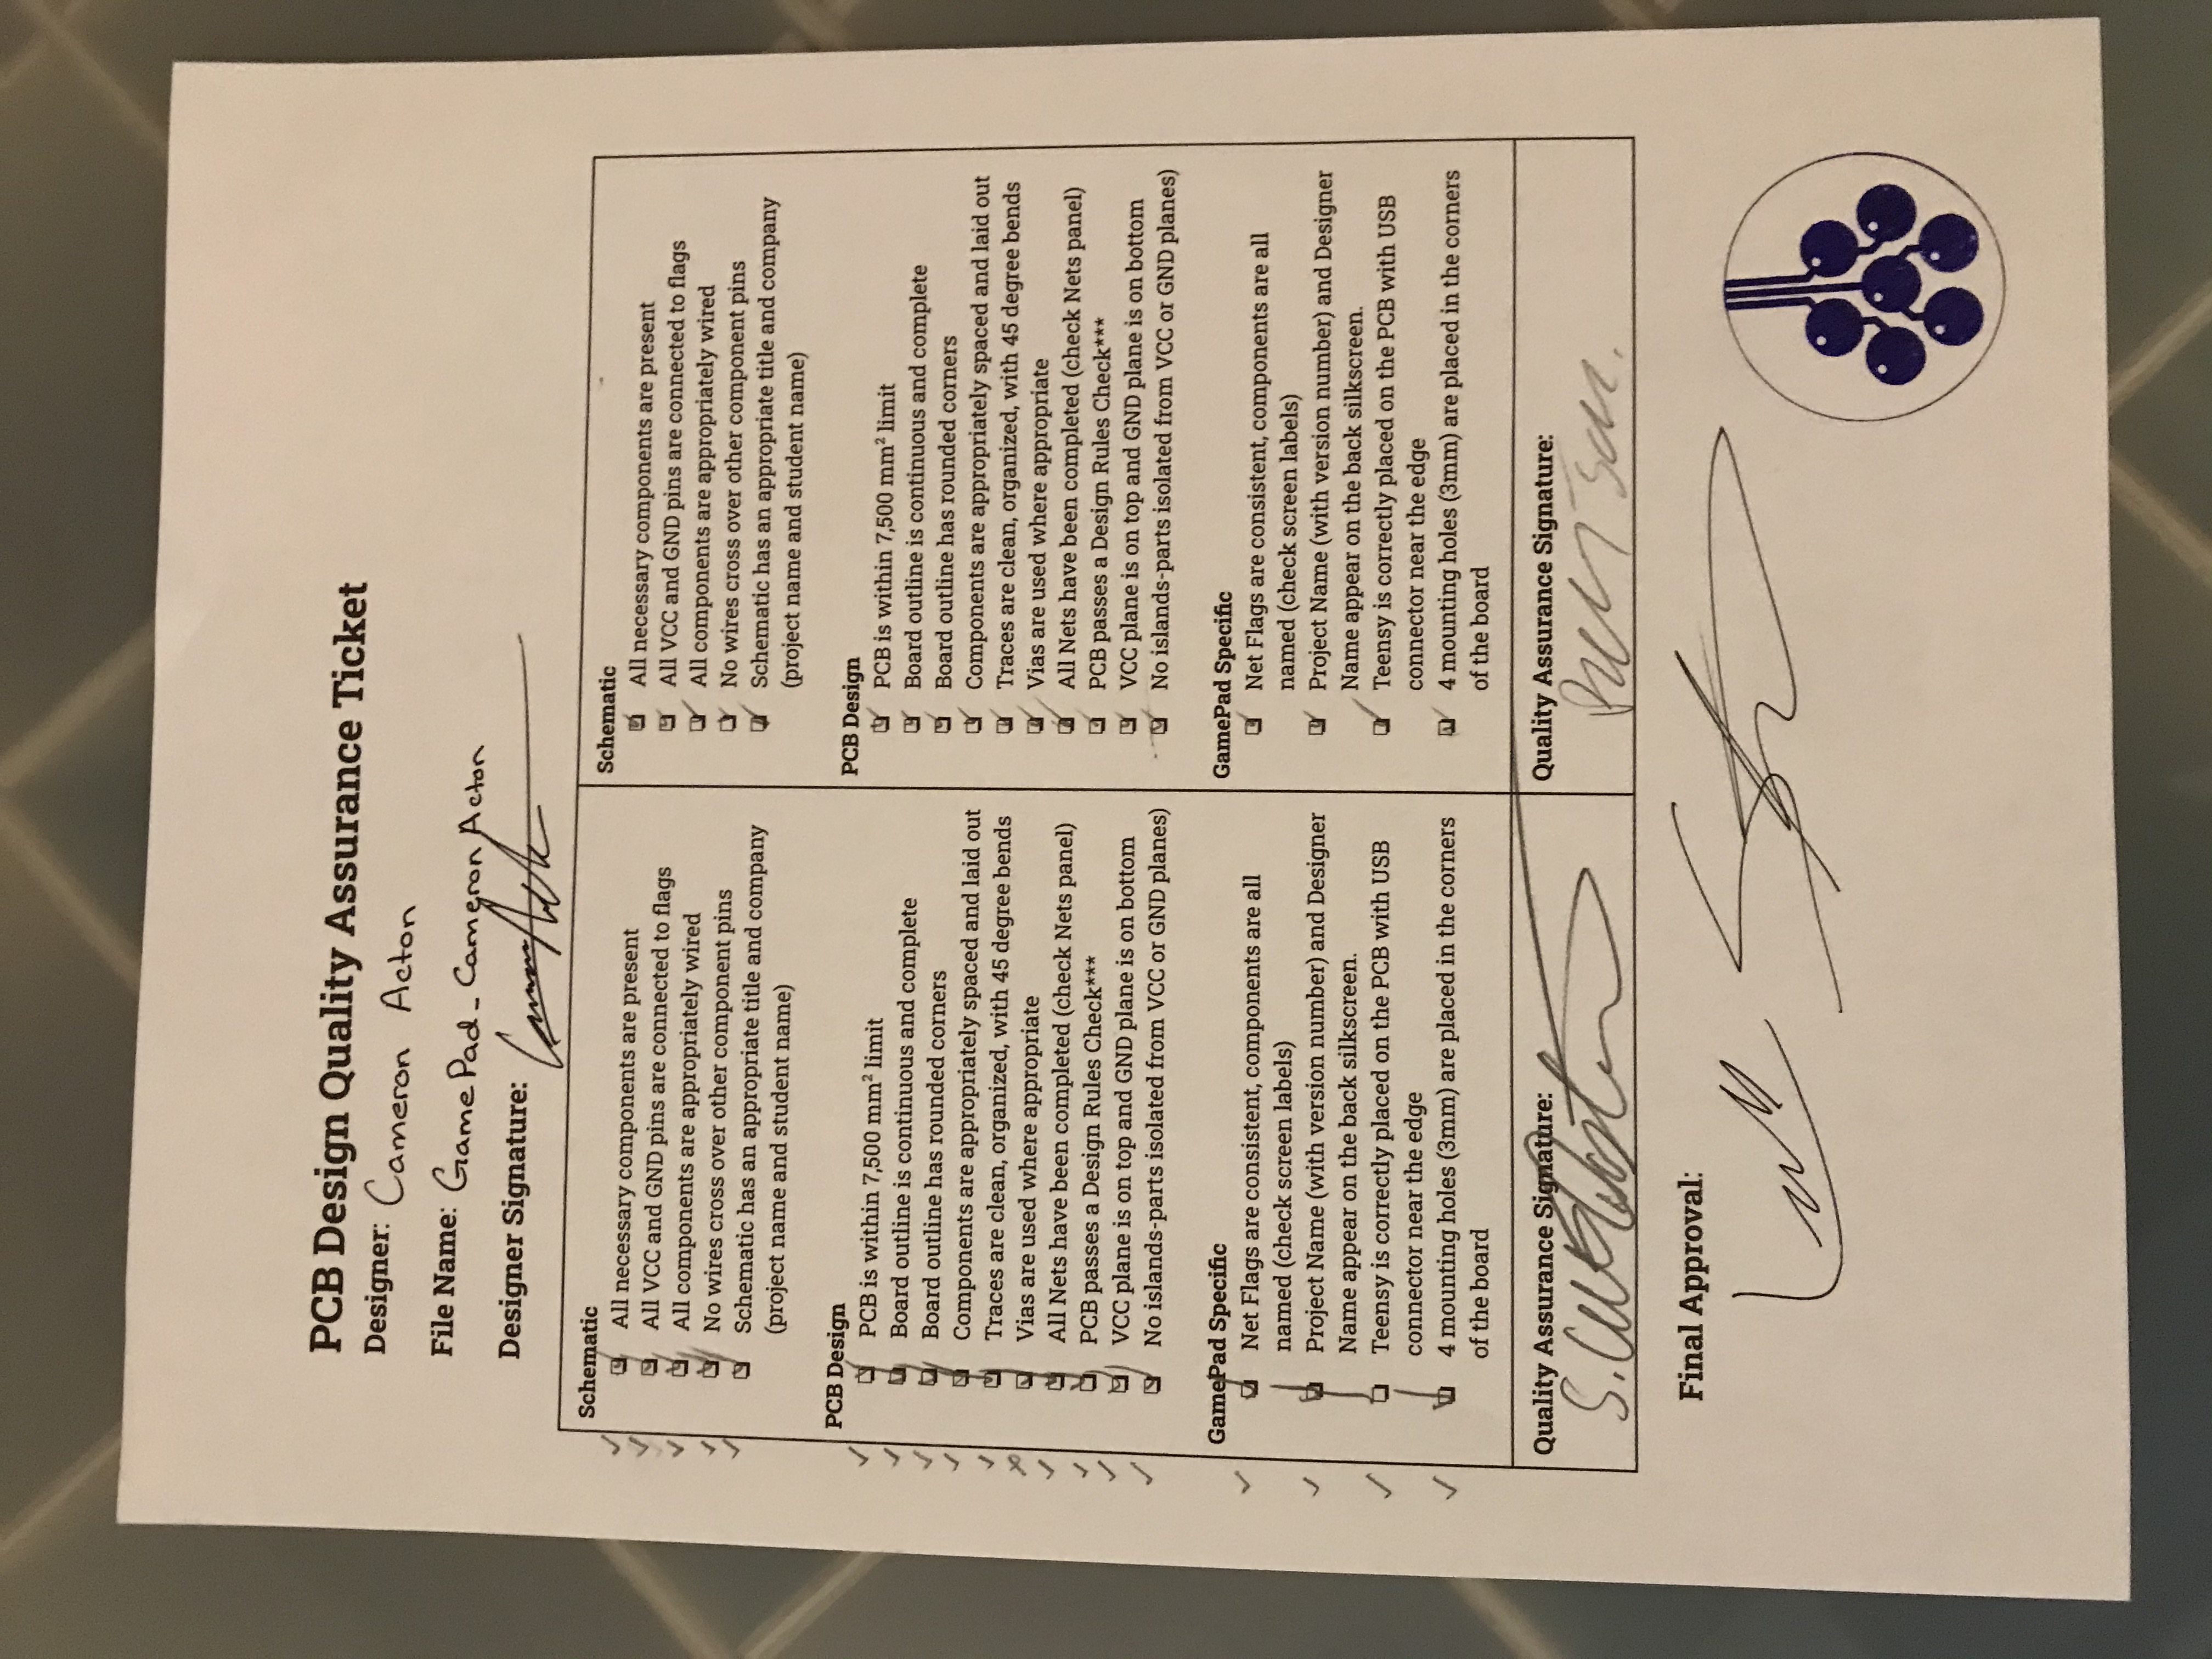 PCB Design Quality Assurance Ticket
Designer: Cameron Acton
File Name: GamePad_CameronActon
Designer Signature:
Schematic
All necessary components are present
All VCC and GND pins are connected to flags
All components are appropriately wired
No wires cross over other component pins
Schematic has an appropriate title and company
(project name and student name)
PCB Design
PCB is within 7,500 mm² limit
Board outline is continuous and complete
Board outline has rounded corners
Components are appropriately spaced and laid out
Traces are clean, organized, with 45 degree bends
Vias are used where appropriate
All Nets have been completed (check Nets panel)
PCB passes a Design Rules Check***
VCC plane is on top and GND plane is on bottom
No islands-parts isolated from VCC or GND planes)
GamePad Specific
Net Flags are consistent, components are all
named (check screen labels)
Project Name (with version number) and Designer
Name appear on the back silkscreen.
Teensy is correctly placed on the PCB with USB
connector near the edge
4 mounting holes (3mm) are placed in the corners
of the board
Quality Assurance Signature:
Schematic
All necessary components are present
All VCC and GND pins are connected to flags
All components are appropriately wired
No wires cross over other component pins
Schematic has an appropriate title and company
(project name and student name)
PCB Design
PCB is within 7,500 mm² limit
Board outline is continuous and complete
Board outline has rounded corners
Components are appropriately spaced and laid out
Traces are clean, organized, with 45 degree bends
Vias are used where appropriate
All Nets have been completed (check Nets panel)
PCB passes a Design Rules Check***
VCC plane is on top and GND plane is on bottom
No islands-parts isolated from VCC or GND planes)
GamePad Specific
Net Flags are consistent, components are all
named (check screen labels)
Project Name (with version number) and Designer
Name appear on the back silkscreen.
Teensy is correctly placed on the PCB with USB
connector near the edge
4 mounting holes (3mm) are placed in the corners
of the board
Quality Assurance Signature:
Final Approval: